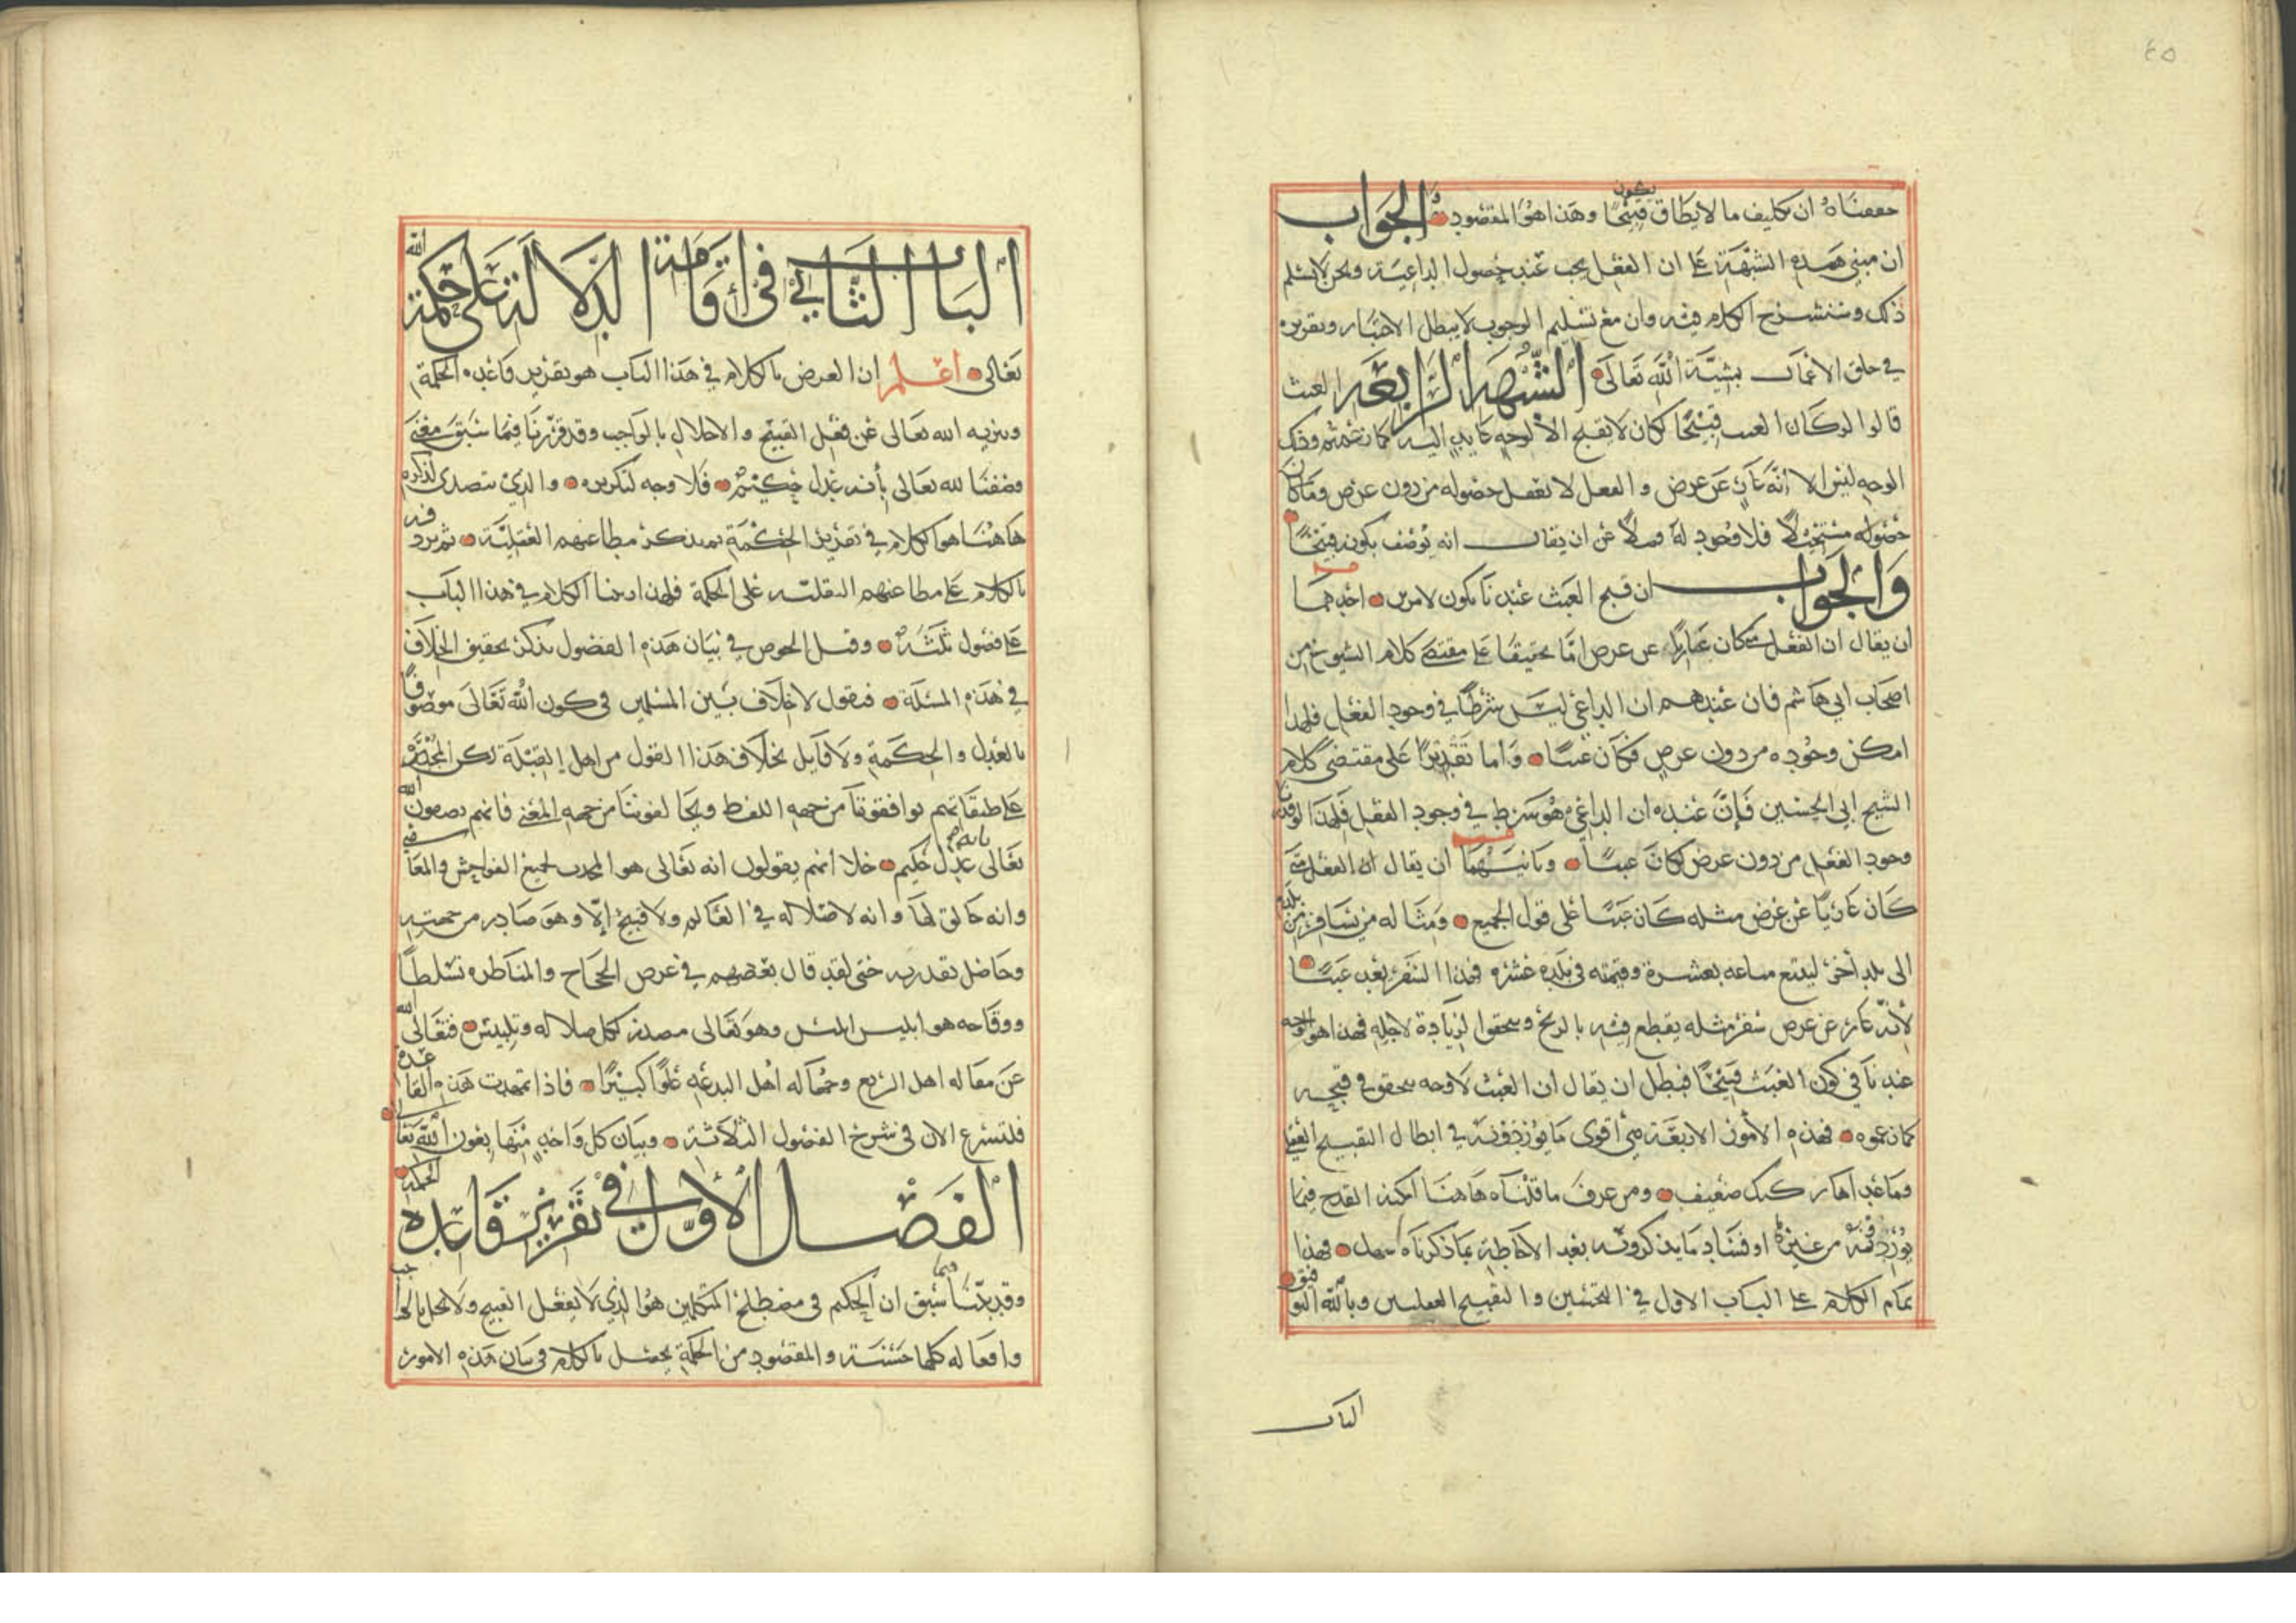 ٤٥
حققناه ان تكليف ما لا يطاق يكون قبيحًا وهذا هو المقصود والجواب
ان مبنى هذه الشبهة على ان الفعل يجب عند حصول الداعية ونحن لا نسلم
ذلك وسنشرح الكلام فيه وان مع تسليم الوجوب لا يبطل الاختيار وتقريره
في خلق الأعمال بمشيّة الله تعالى الشبهة الرابعة العبث
قالوا لو كان العبث قبيحًا لكان لا يقبح الا لوجه عايد اليه كما زعمتم وذلك
الوجه ليس الا انه عارٍ عن غرض والفعل لا يعقل حصوله من دون غرض وما كان
حصوله مستحيلًا فلا وجود له فضلًا عن ان يقال انه يوصف بكونه قبيحًا
والجواب ان قبح العبث عندنا يكون لامرين احدهما
ان يقال ان الفعل متى كان عاريًا عن غرض امّا تحقيقًا على مقتضى كلام الشيوخ من
اصحاب ابي هاشم فان عندهم ان الداعي ليس شرطًا في وجود الفعل فلهذا
امكن وجوده من دون غرض فكان عبثًا واما تقديرًا على مقتضى كلام
الشيخ ابي الحسين فإنّ عنده ان الداعي هو شرط في وجود الفعل فلهذا لو قدرنا
وجود الفعل من دون غرض لكان عبثًا وثانيهما ان يقال ان الفعل متى
كان عاريًا عن غرض مثله كان عبثًا على قول الجميع ومثاله من يسافر من بلده
الى بلد أخرى ليبيع متاعه بعشرة وقيمته في بلده عشره فهذا السفر يعد عبثًا
لأنه عارٍ عن غرض سفر مثله يقطع فيه بالربح وتحقق الزيادة لاجله فهذا هو الوجه
عندنا في كون العبث قبيحًا فبطل ان يقال ان العبث لا وجه يتحقق في قبحه
كما زعموه فهذه الأمور الاربعة هي أقوى ما يوردونه في ابطال التقبيح العقلي
وما عداها ركيك ضعيف ومن عرف ما قلناه هاهنا امكنه القدح فيما
يوردونه من غيرها وفساد ما يذكرونه بعد الاحاطة بما ذكرناه سهل فهذا
تمام الكلام على الباب الاول في التحسين والتقبيح العقليين وبالله التوفيق
الباب
الباب الثاني في إقامة الدلالة على حكمة الله
تعالى اعلم ان الغرض بالكلام في هذا الباب هو تقرير قاعدة الحكمة
وتنزيه الله تعالى عن فعل القبيح والاخلال بالواجب وقد قررنا فيما سبق معنى
وصفنا لله تعالى بأنه عدل حكيم فلا وجه لتكريره والذي نتصدى لذكره
هاهنا هو الكلام في تقرير الحكمة ثم نذكر مطاعنهم العقلية ثم نردفه
بالكلام على مطاعنهم النقلية على الحكمة فلهذا رتبنا الكلام في هذا الباب
على فصول ثلثة وقبل الخوض في بيان هذه الفصول نذكر تحقيق الخلاف
في هذه المسئلة فنقول لا خلاف بين المسلمين في كون الله تعالى موصوفًا
بالعدل والحكمة ولا قايل بخلاف هذا القول من اهل القبلة لكن المجبرة
على طبقاتهم يوافقوننا من جهة اللفظ ويخالفوننا من جهة المعنى فانهم يصفون الله
تعالى بانه عدل حكيم خلا انهم يقولون انه تعالى هو المحدث لجميع الفواحش والمعاصي
وانه خالق لها وانه لا ضلاله في العالم ولا قبيح إلّا وهو صادر من جهته
وحاصل بقدرته حتى لقد قال بعضهم في غرض الحجاج والمناظره تسلطًا
ووقاحه هو ابليس ابليس وهو تعالى مصدر كل ضلاله وتلبيس فتعالى الله
عن مقاله اهل الزيغ وجهاله اهل البدعه علوًا كبيرًا فاذا تمهدت هذه القاعدة
فلنشرع الان في شرح الفصول الثلاثة وبيان كل واحد منها بعون الله تعالى
الفصل الأول في تقرير قاعدة الحكمة
وقد بيّنا فيما سبق ان الحكيم في مصطلح المتكلمين هو الذي لا يفعل القبيح ولا يخل بالواجب
وافعاله كلها حسنة والمقصود من الحكمة يحصل بالكلام في بيان هذه الامور